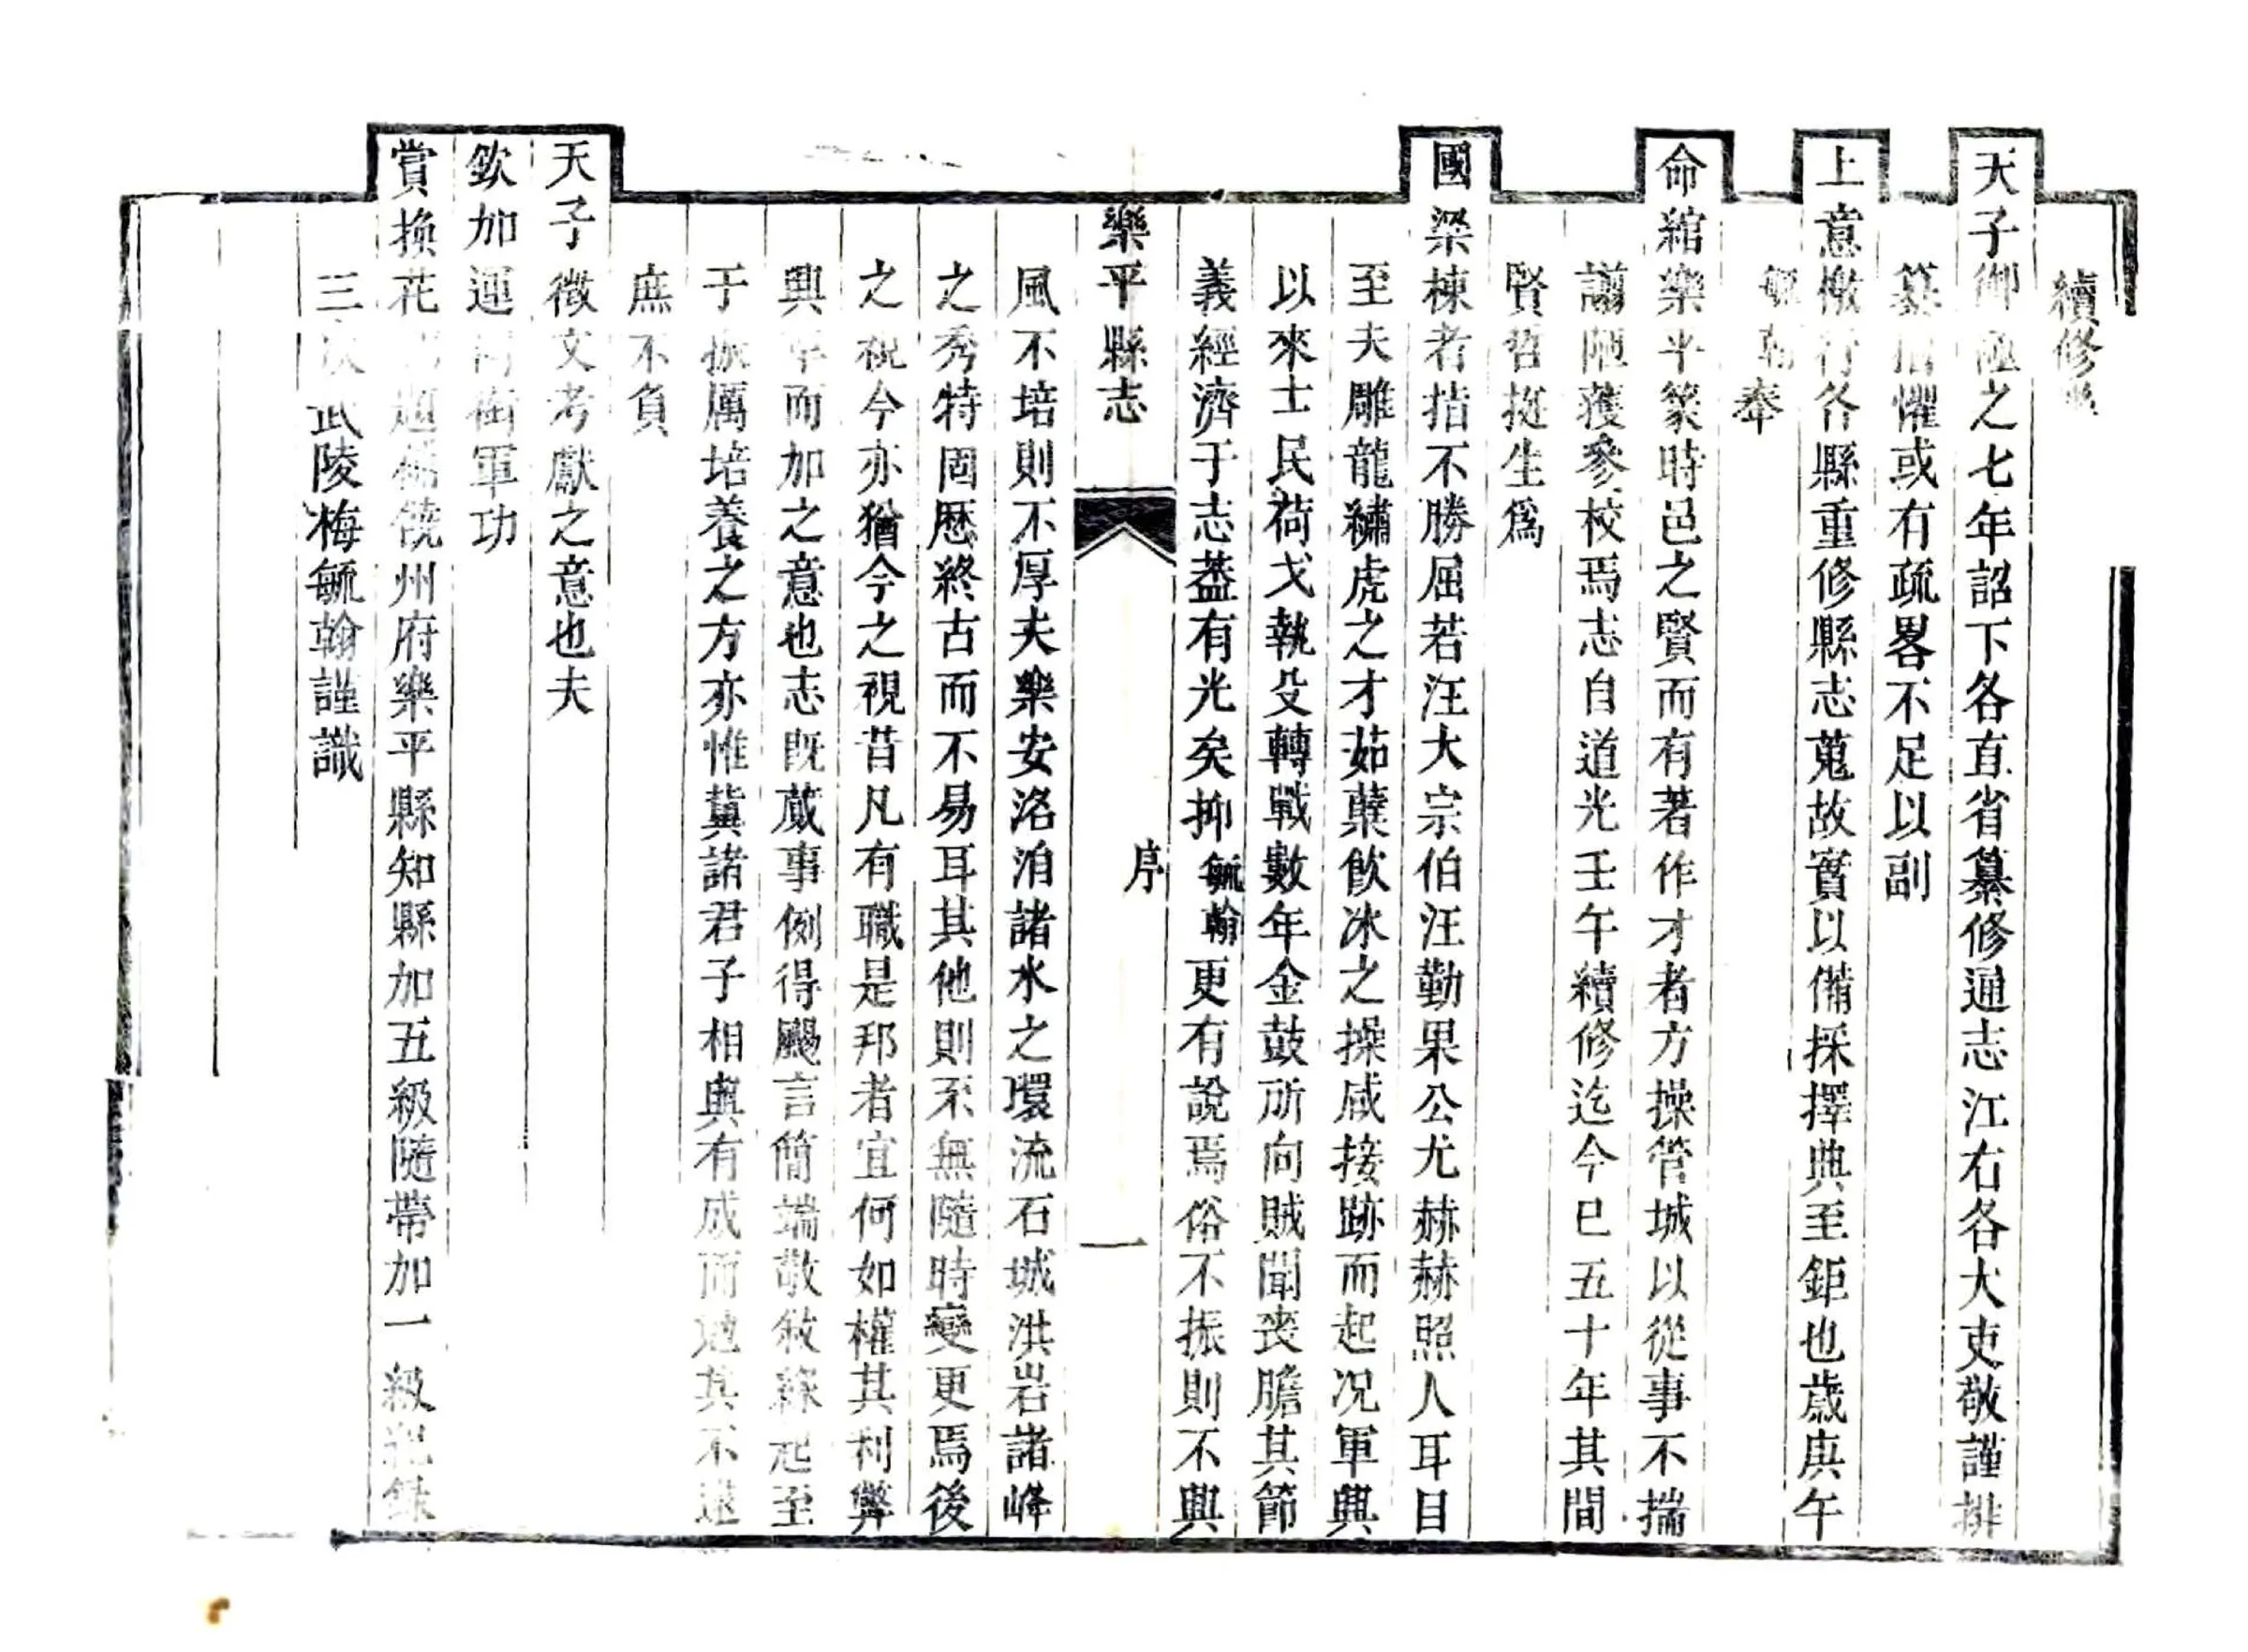 續修
天子御極之七年詔下各直省纂修通志江右各大吏敬謹排
纂懼或有疏畧不足以副
上意檄行各縣重修縣志蒐故實以備採擇典至鉅也歲庚午
毓翰奉
命綰樂平篆時邑之賢而有著作才者方操管城以從事不揣
譾陋獲參校焉志自道光壬午續修迄今已五十年其間
賢哲挺生爲
國梁棟者指不勝屈若汪大宗伯汪勤果公尤赫赫照人耳目
至夫雕龍繡虎之才茹蘖飲冰之操咸接跡而起况軍興
以來士民荷戈執殳轉戰數年金鼓所向賊聞喪膽其節
義經濟于志葢有光矣抑毓翰更有說焉俗不振則不興
樂平縣志
序
一
風不培則不厚夫樂安洛泊諸水之環流石城洪岩諸峰
之秀特固歷終古而不易耳其他則不無隨時變更焉後
之視今亦猶今之視昔凡有職是邦者宜何如權其利弊
興革而加之意也志既蕆事例得颺言簡端敬敘緣起至
于振厲培養之方亦惟冀諸君子相與有成而勉其不逮
庶不負
天子徵文考獻之意也夫
欽加運同銜軍功
賞換花翎題補饒州府樂平縣知縣加五級隨帶加一級紀錄
三次武陵梅毓翰謹識